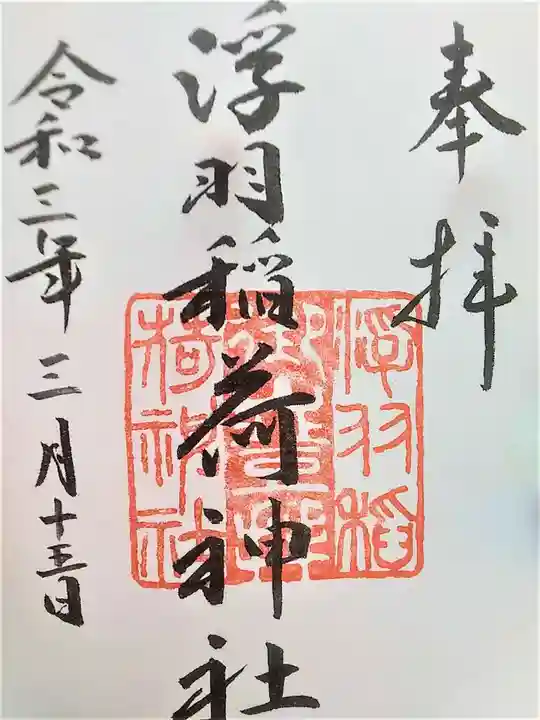 奉拝
浮羽稲荷神社
令和三年三月十五日
浮羽稲
荷神社